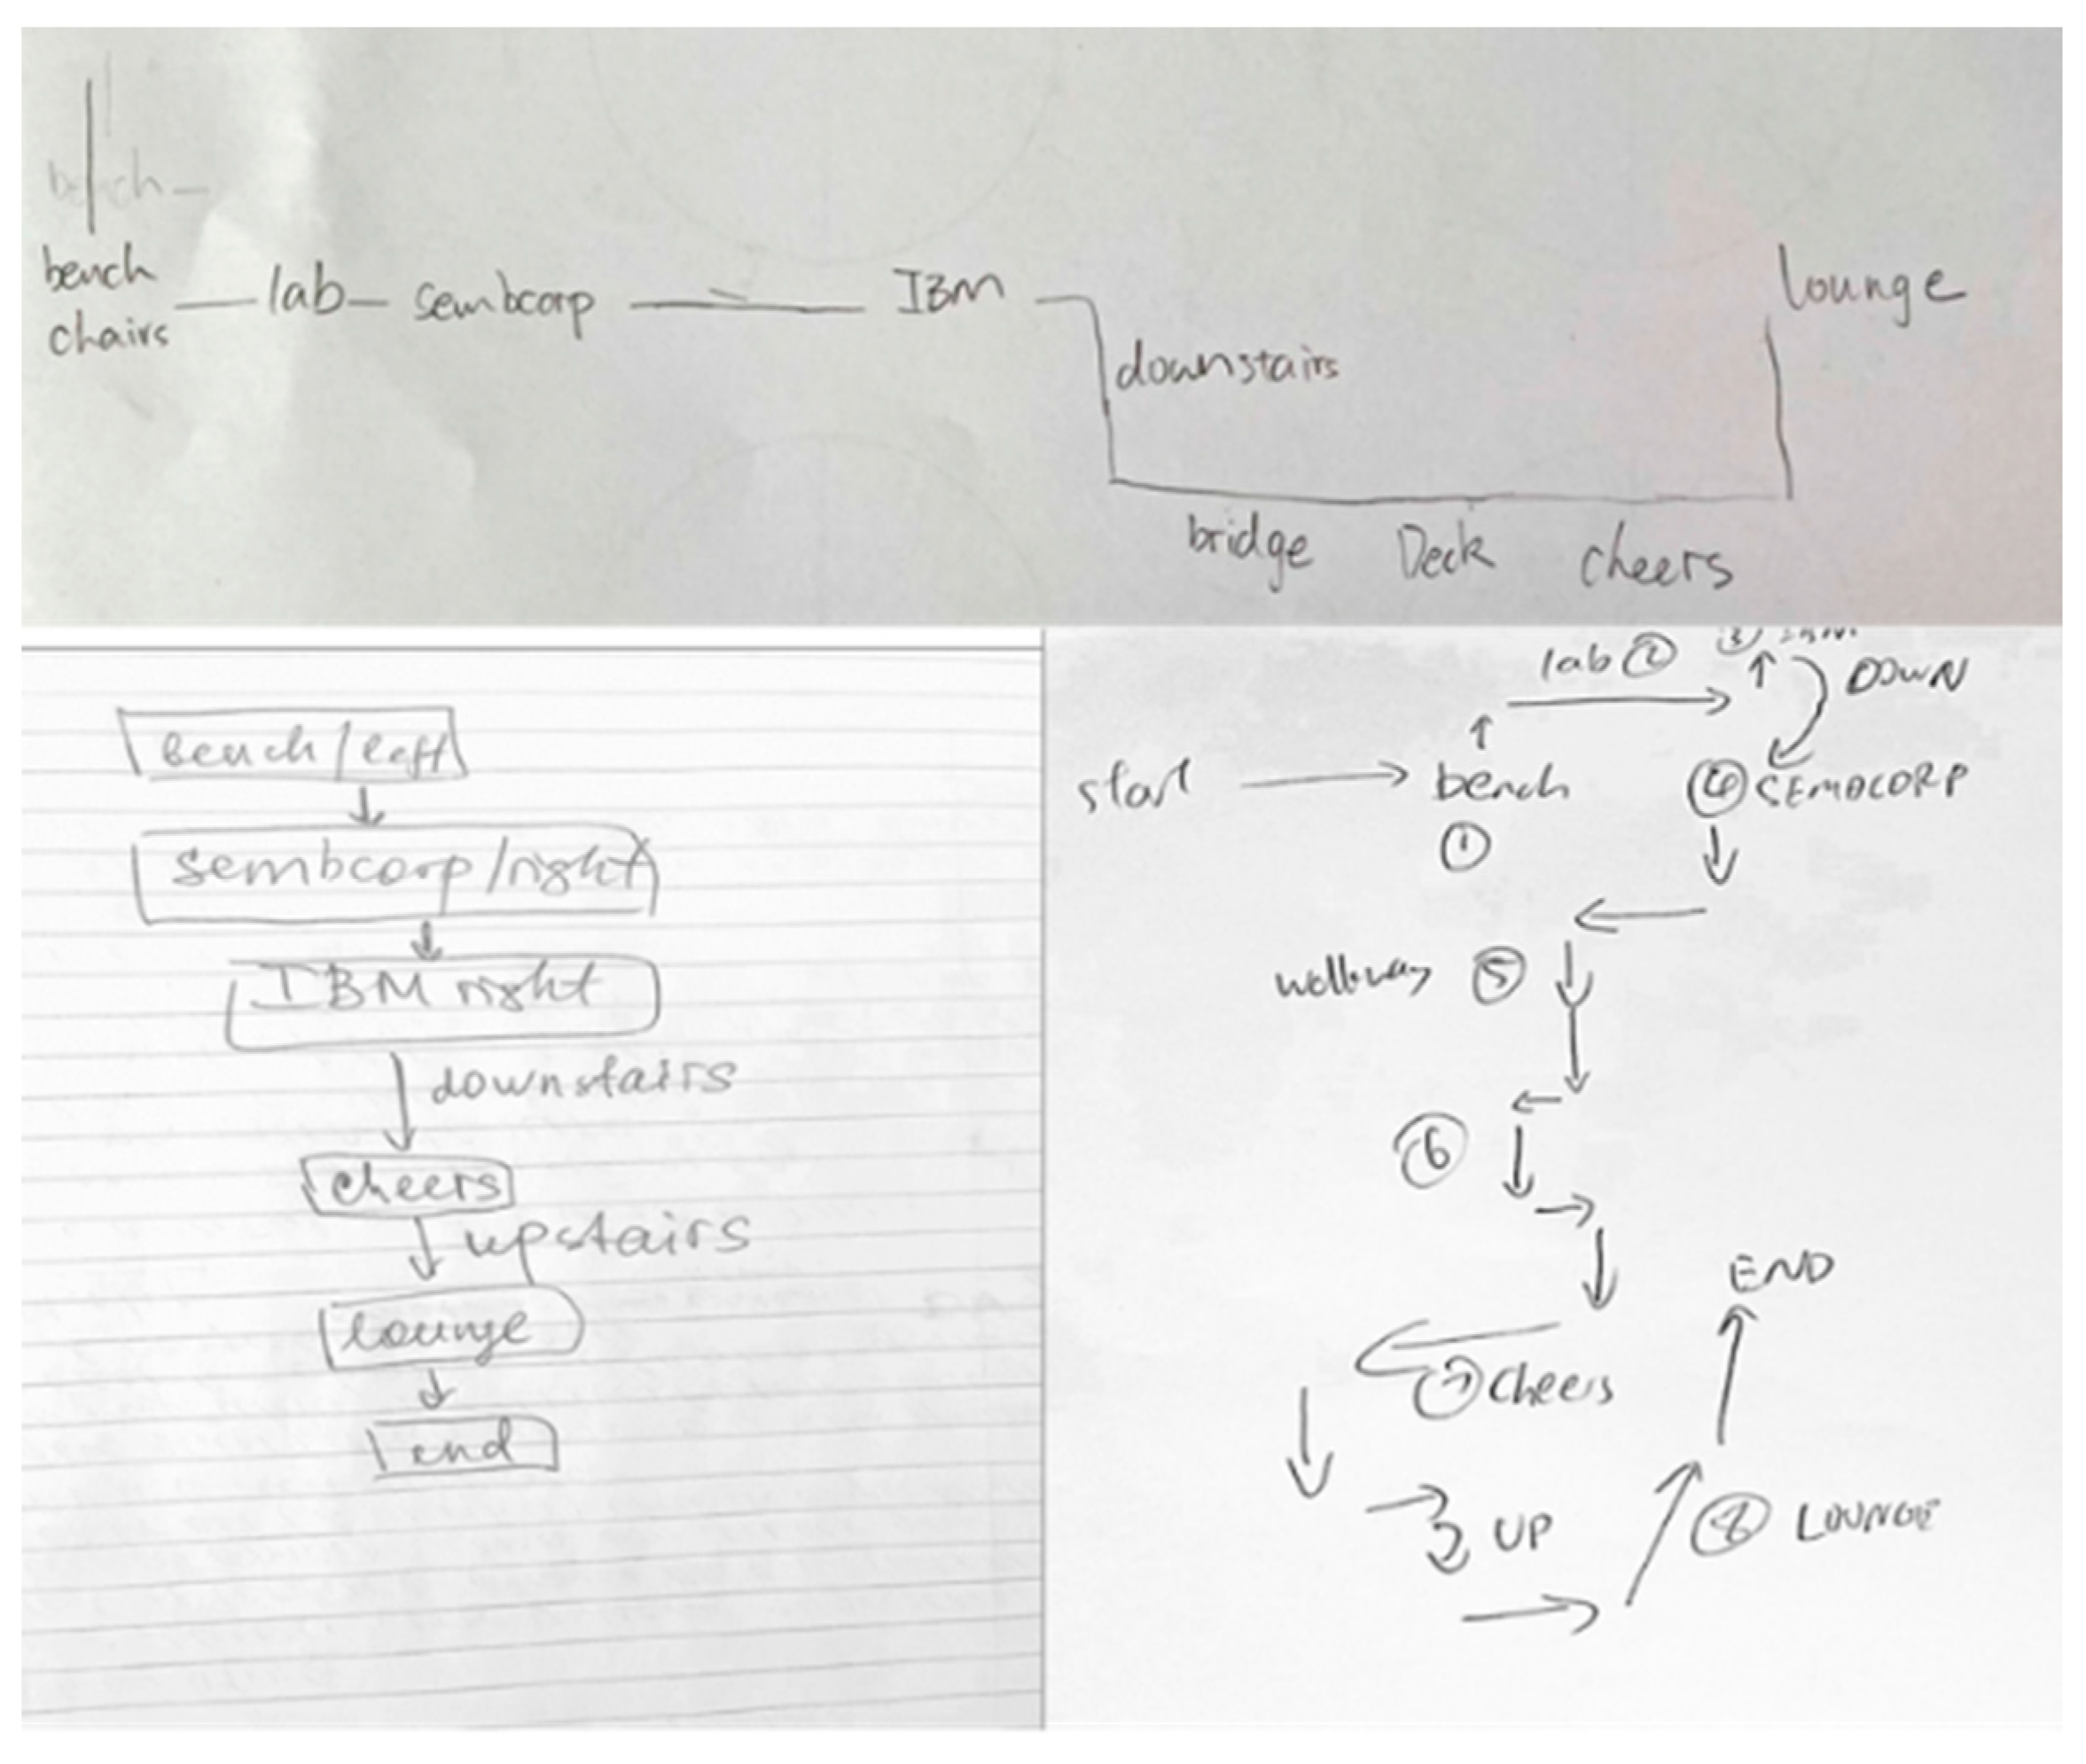 bench
bench
chairs
lab
sembcorp
IBM
downstairs
lounge
bridge Deck cheers
bench/left
sembcorp/right
IBM right
downstairs
cheers
upstairs
lounge
end
lab 2
3 IBM
DOWN
start
bench
1
4 SEMBCORP
walkway 5
6
7 cheers
END
UP
8 LOUNGE